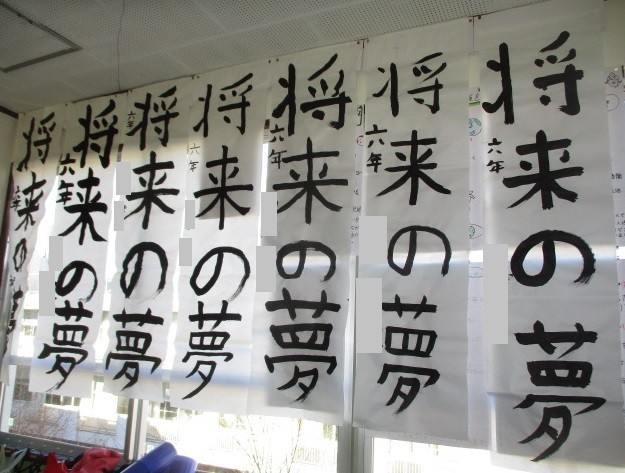 将来の夢
六年
将来の夢
六年
将来の夢
六年
将来の夢
六年
将来の夢
六年
将来の夢
六年
将来の夢
六年